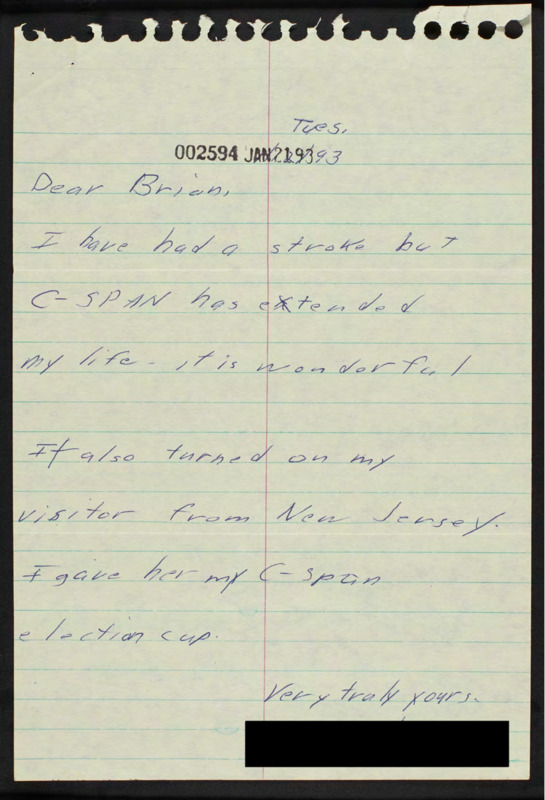 Tues.
002594 JAN 21 93
Dear Brian,
I have had a stroke but
C-SPAN has extended
my life - it is wonderful
It also turned on my
visitor from New Jersey.
I gave her my C-span
election cup.
Very truly yours.